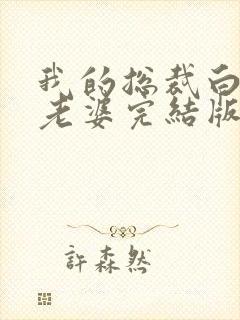 我的总裁白
老婆完結版
許森然